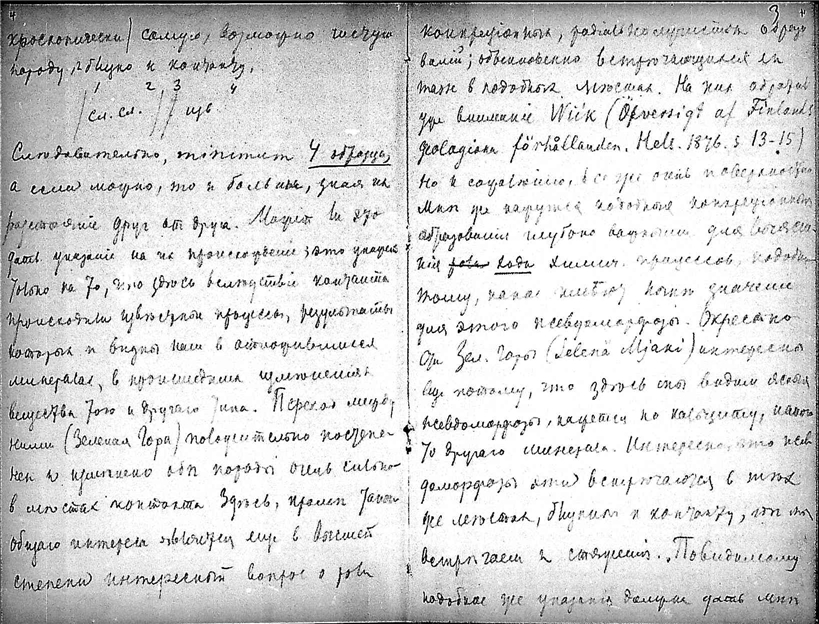 4
кроскопически) самую, возможно чистую
породу, ближе к контакту.
1 2 3 4
сл. сл. изв.
Следовательно, minimum 4 образца,
а если можно, то и больше, зная их
расстояние друг от друга. Может ли это
дать указание на их происхождение
только на то, что здѣсь вслѣдствіе контакта
происходили процессы, результаты
которых и видны нам в
минералах, в происшедших измѣненіях
вещества того и другаго типа. Переход между
ними (Зеленая Гора) постепе-
нен и измѣнено обѣ породы очень сильно
в мѣстах контакта. Здѣсь, кромѣ
общаго интереса является еще в высшей
степени интересный вопрос о роли
3
4
конкреціонных, radial образо-
ваній; обыкновенно встрѣчающихся
также в подобных мѣстах. На них обратил
уже вниманіе Wiik (Öfversigt af Finlands
geologiska förhållanden. Hels. 1876. s 13-15)
но к сожалѣнію, все же очень поверхностно
Мнѣ же кажутся подобные конкреціонныя
образования глубоко важными для
нія роли хода химич. процессов, подобно
тому, какое имѣют значеніе
для этого псевдоморфозы. Окрестно
сти Зел. Горы (Selenä Mjaki) интересны
еще потому, что здѣсь мы видим ясныя
псевдоморфозы, кажется по кальциту, какого
то другаго минерала. Интересно, что псев-
доморфозы эти встрѣчаются в тѣх
же мѣстах, ближе к контакту, гдѣ мы
встрѣчаем и стяженія. Повидимому
подобное же указаніе должны дать мнѣ